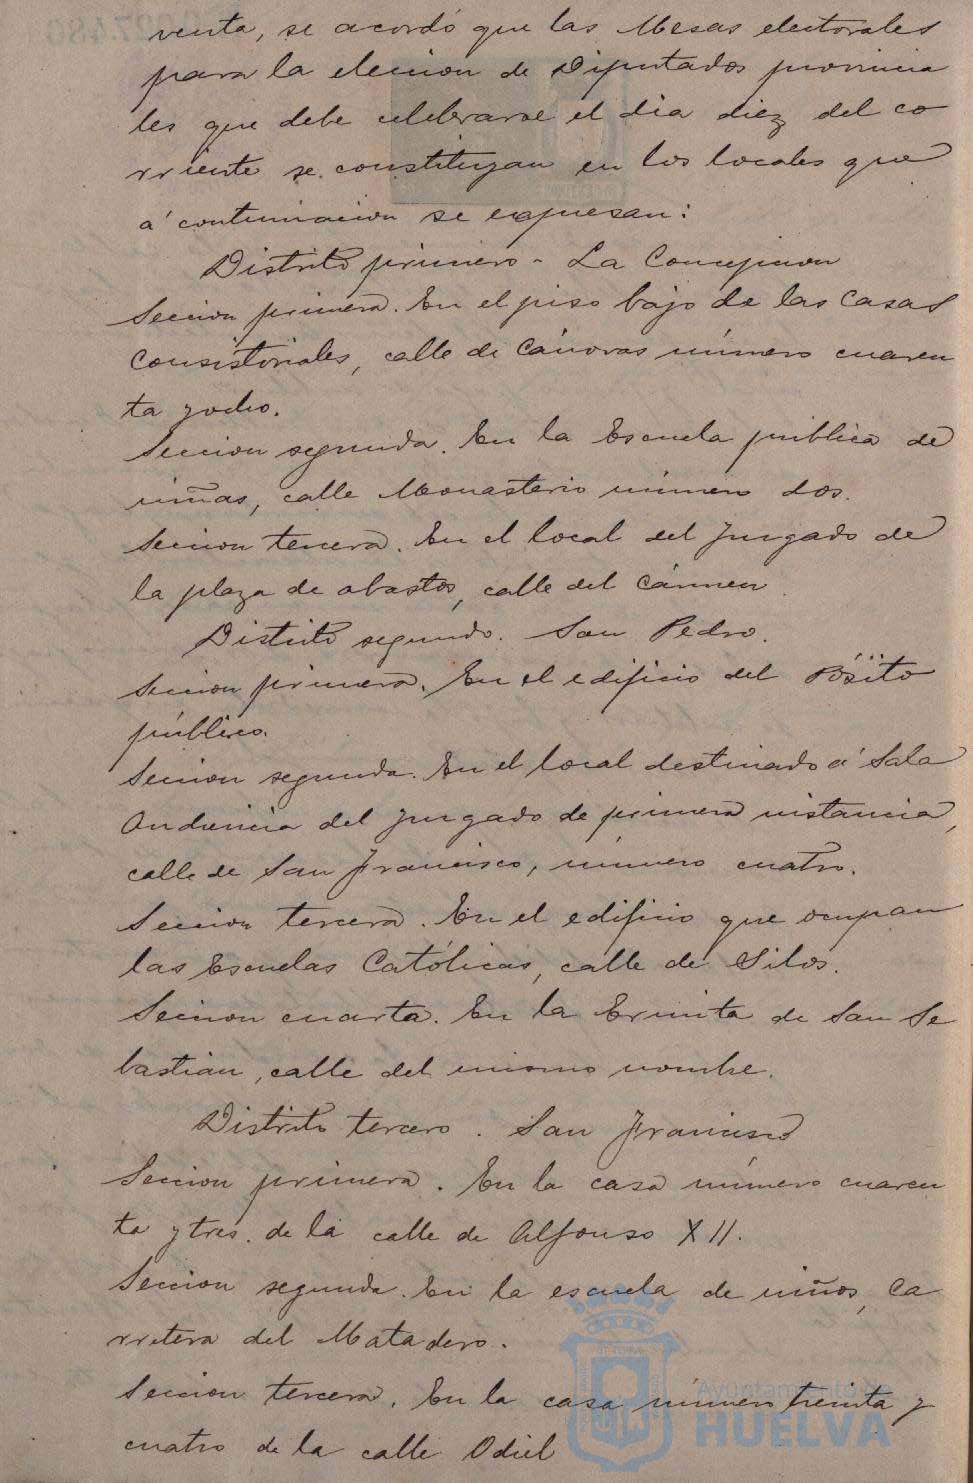 venta, se acordó que las Mesas electorales
para la eleccion de Diputados provincia
les que debe celebrarse el dia diez del co
rriente se constituyan en los locales que
á continuacion se expresan:
Distrito primero - La Concepcion
Seccion primera. En el piso bajo de las Casas
Consistoriales, calle de Cánovas número cuaren
ta y ocho.
Seccion segunda. En la Escuela pública de
niñas, calle Monasterio número dos.
Seccion tercera. En el local del Juzgado de
la plaza de abastos, calle del Cármen.
Distrito segundo. San Pedro.
Seccion primera. En el edificio del Pósito
público.
Seccion segunda. En el local destinado á Sala
Audiencia del Juzgado de primera instancia,
calle de San Francisco, número cuatro.
Seccion tercera. En el edificio que ocupan
las Escuelas Católicas, calle de Silos.
Seccion cuarta. En la Ermita de San Se
bastián, calle del mismo nombre.
Distrito tercero. San Francisco
Seccion primera. En la casa número cuaren
ta y tres de la calle de Alfonso XII.
Seccion segunda. En la escuela de niños, Ca
rretera del Matadero.
Seccion tercera. En la casa número treinta y
cuatro de la calle Odiel
Ayuntamiento de
HUELVA